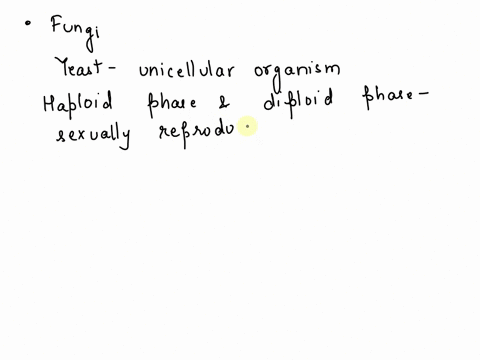 • Fungi
Yeast - unicellular organism
Haploid phase & diploid phase -
sexually reprodu